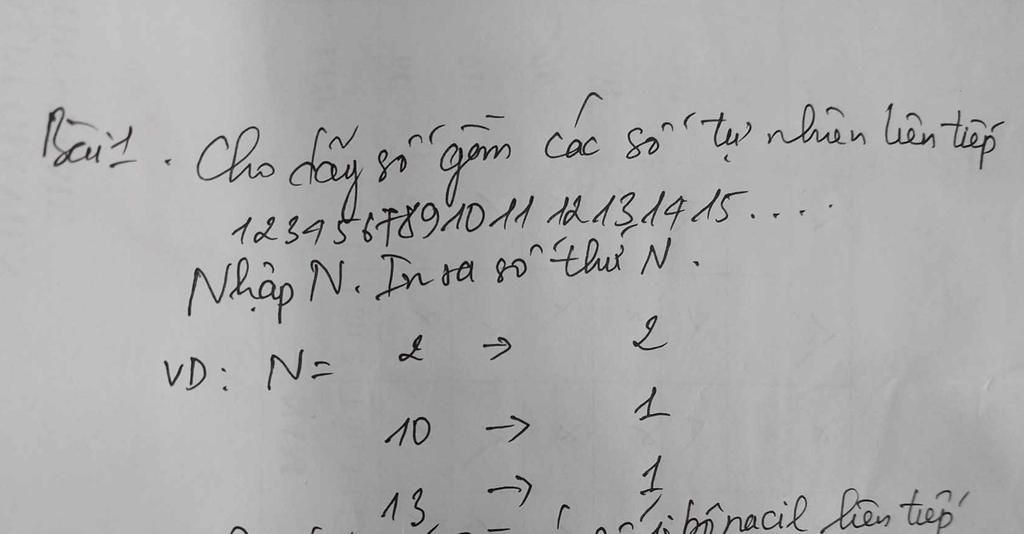 Bài 1. Cho dãy số gồm các số tự nhiên liên tiếp
123456789101112131415....
Nhập N. In ra số thứ N.
VD: N= 2 → 2
10 → 1
13 → 1
bônacil liên tiếp